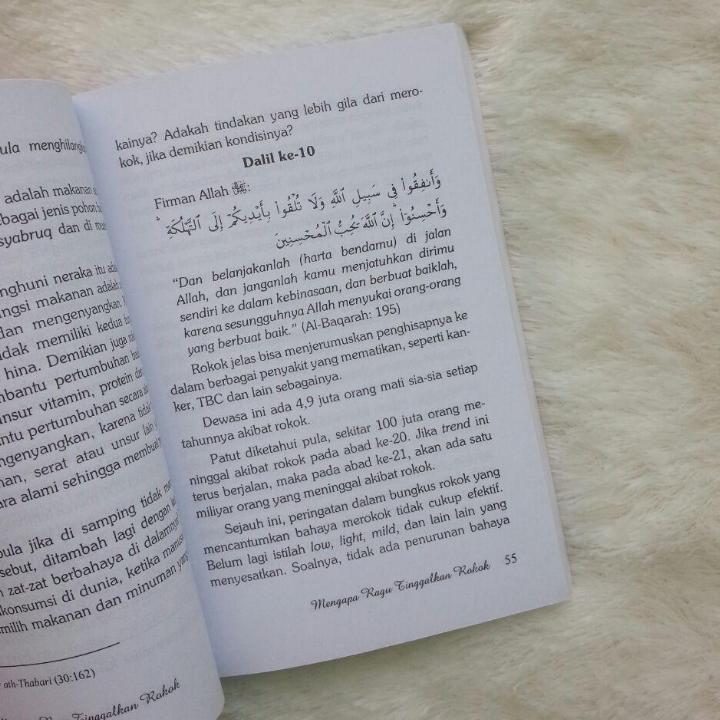 ula menghilangk
adalah makanan
bagai jenis pohon
syabruq dan di
nghuni neraka itu
ngsi makanan adalah
dan mengenyangkan.
dak memiliki kedua
hina. Demikian juga
mbantu pertumbuhan
nsur vitamin, protein
ntu pertumbuhan secara
ngenyangkan, karena
nan, serat atau unsur lain
ara alami sehingga membuat
pula jika di samping tidak
sebut, ditambah lagi dengan
n zat-zat berbahaya di dalamnya
konsumsi di dunia, ketika
milih makanan dan minuman yang
ath-Thabari (30:162)
Tinggalkan Rokok
kainya? Adakah tindakan yang lebih gila dari mero-
kok, jika demikian kondisinya?
Dalil ke-10
Firman Allah ﷻ:
وَأَنفِقُوا۟ فِى سَبِيلِ ٱللَّهِ وَلَا تُلْقُوا۟ بِأَيْدِيكُمْ إِلَى ٱلتَّهْلُكَةِ ۛ
وَأَحْسِنُوٓا۟ ۛ إِنَّ ٱللَّهَ يُحِبُّ ٱلْمُحْسِنِينَ
“Dan belanjakanlah (harta bendamu) di jalan
Allah, dan janganlah kamu menjatuhkan dirimu
sendiri ke dalam kebinasaan, dan berbuat baiklah,
karena sesungguhnya Allah menyukai orang-orang
yang berbuat baik.” (Al-Baqarah: 195)
Rokok jelas bisa menjerumuskan penghisapnya ke
dalam berbagai penyakit yang mematikan, seperti kan-
ker, TBC dan lain sebagainya.
Dewasa ini ada 4,9 juta orang mati sia-sia setiap
tahunnya akibat rokok.
Patut diketahui pula, sekitar 100 juta orang me-
ninggal akibat rokok pada abad ke-20. Jika trend ini
terus berjalan, maka pada abad ke-21, akan ada satu
miliyar orang yang meninggal akibat rokok.
Sejauh ini, peringatan dalam bungkus rokok yang
mencantumkan bahaya merokok tidak cukup efektif.
Belum lagi istilah low, light, mild, dan lain lain yang
menyesatkan. Soalnya, tidak ada penurunan bahaya
Mengapa Ragu Tinggalkan Rokok 55